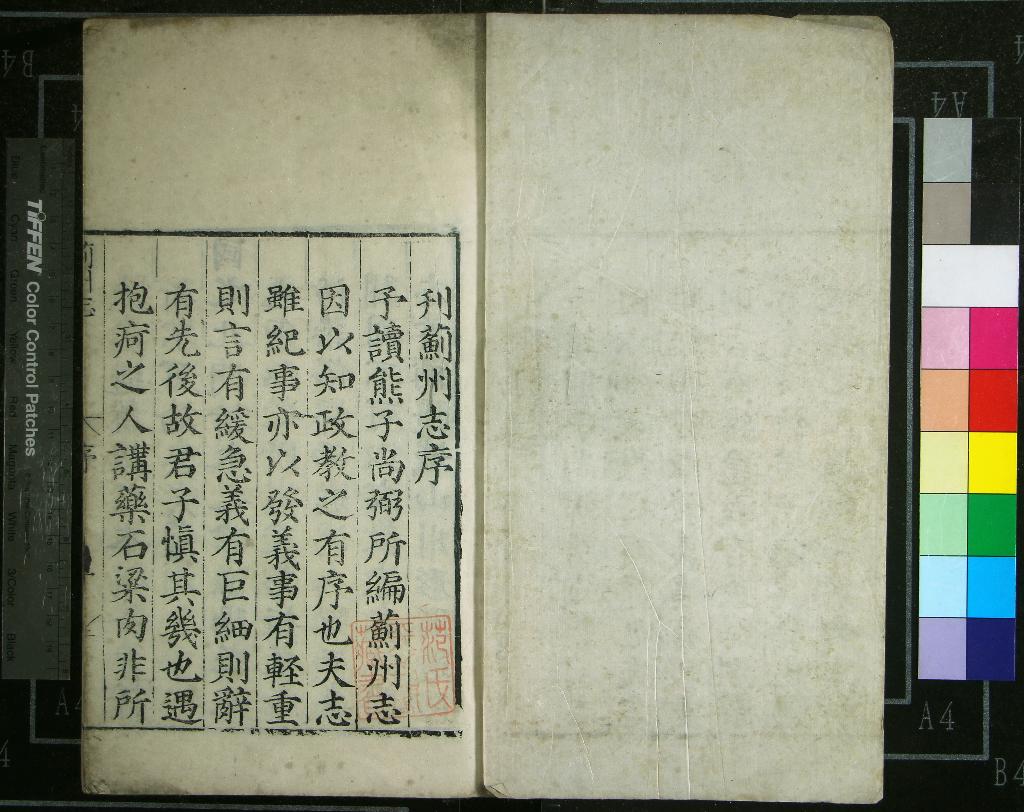 刋薊州志序
予讀熊子尚弼所編薊州志
因以知政教之有序也夫志
雖紀事亦以發義事有輕重
則言有緩急義有巨細則辭
有先後故君子慎其幾也遇
抱疴之人講藥石粱肉非所
序
范氏
TIFFEN Color Control Patches
Black
3/Color
White
Magenta
Red
Yellow
Green
Cyan
A4
A4
B4
B4
A4